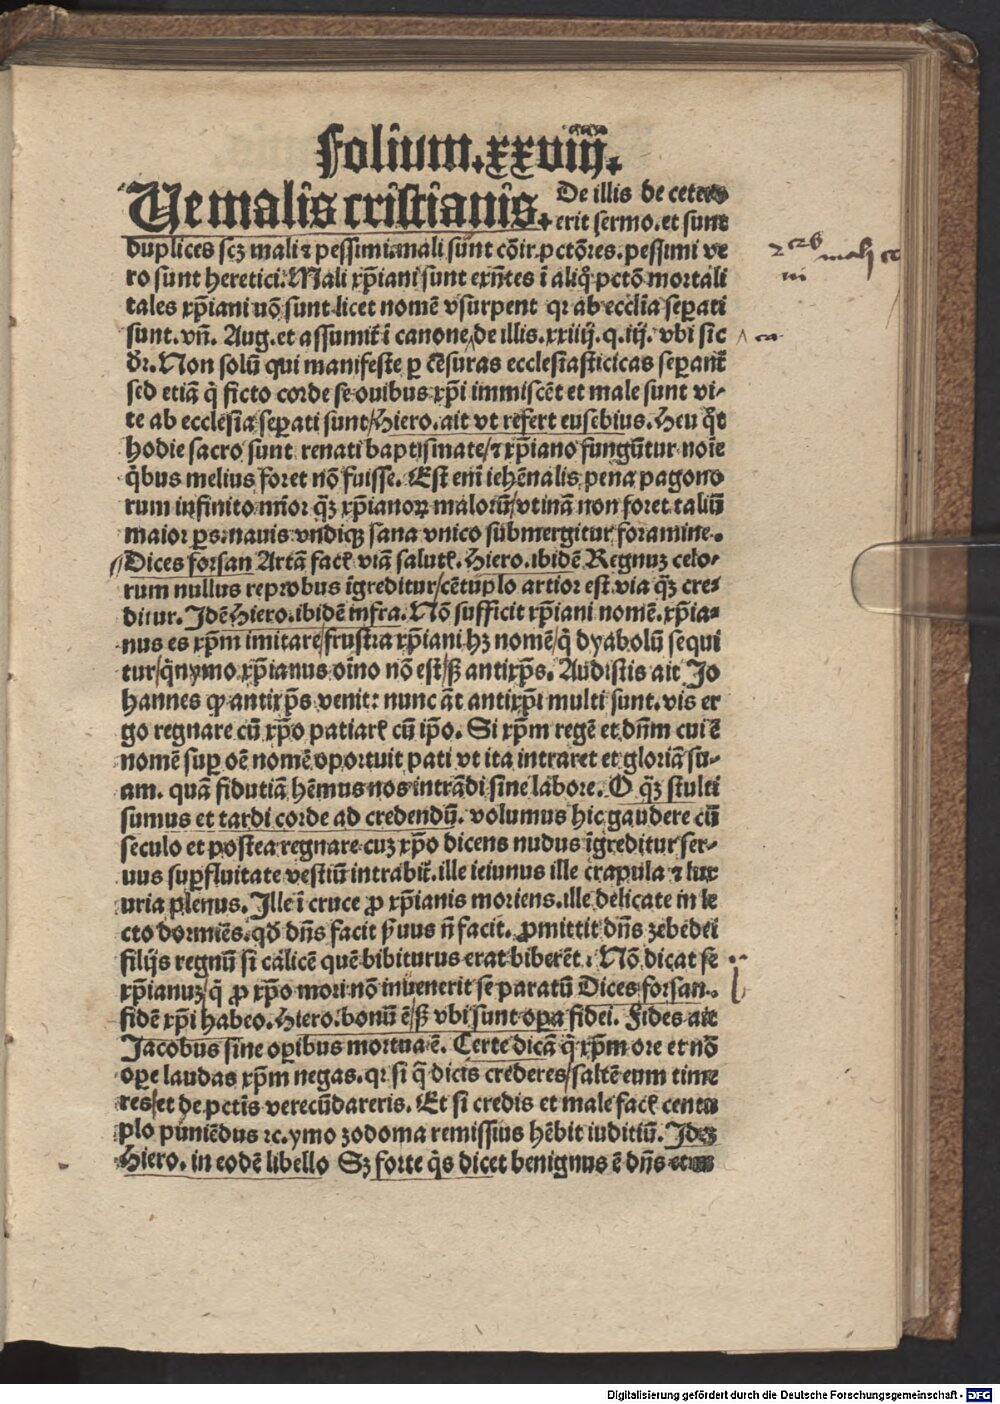 Folium.xxviij.
De malis cristianis. De illis de cetero
erit sermo. et sunt
duplices scz mali ⁊ pessimi. mali sunt cōir. pctōres. pessimi ve
ro sunt heretici. Mali xp̄iani sunt exn̄tes ī aliq̇ pctō mortali
tales xp̄iani nō sunt licet nomē vsurpent qꝛ ab ecclīa sep̄ati
sunt. vn̄. Aug. et assumit̄ ī canone de illis. xxiiij. q. iij. vbi sic
dꝛ. Non solū qui manifeste ꝑ cēsuras ecclesiasticicas sep̄ant̄
sed etiā q̇ ficto corde se ouibus xp̄i immiscēt et male sunt vi-
te ab ecclesia sep̄ati sunt/Hiero. ait vt refert eusebius. Heu q̄t
hodie sacro sunt renati baptismate/⁊ xp̄iano fungūtur noīe
q̇bus melius foret nō fuisse. Est enī iehēnalis pena pagono
rum infinito mīor q̄ꝫ xp̄ianoꝝ maloꝝ/vtinā non foret taliū
maior ꝑs. nauis vndiqꝫ sana vnico submergitur foramine.
Dices forsan Artā facꝭ viā salutꝭ. Hiero. ibidē Regnuꝫ celo-
rum nullus reprobus īgreditur/cētuplo artior est via q̄ꝫ cre-
ditur. Idē Hiero. ibidē infra. Nō sufficit xp̄iani nomē. xp̄ia-
nus es xp̄m imitare/frustra xp̄iani hꝫ nomē/q̇ dyabolū sequi
tur/q̇nymo xp̄ianus oīno nō est/sꝫ antixp̄s. Audistis ait Jo
hannes ꝙ antixp̄s venit: nunc āt antixp̄i multi sunt. vis er
go regnare cū xp̄o patiarꝭ cū ip̄o. Si xp̄m regē et dn̄m cui ē
nomē suꝑ oē nomē oportuit pati vt ita intraret et gloriā su-
am. quā fidutiā hēmus nos intrādi sine labore. O q̄ꝫ stulti
sumus et tardi corde ad credendū. volumus hic gaudere cū
seculo et postea regnare cuꝫ xp̄o dicens nudus īgreditur ser-
uus suꝑfluitate vestiū intrabit̄. ille ieiunus ille crapula ⁊ lux
uria plenus. Ille ī cruce ꝓ xp̄ianis moriens. ille delicate in le
cto dormiēs. qd̄ dn̄s facit ẜuus n̄ facit. ꝓmittit dn̄s zebedei
filijs regnū si calicē quē bibiturus erat biberēt. Nō dicat se
xp̄ianuꝫ/q̇ ꝓ xp̄o mori nō inuenerit se paratū Dices forsan.
fidē xp̄i habeo. Hiero. bonū ē/sꝫ vbi sunt oꝑa fidei. Fides ait
Jacobus sine oꝑibus mortua ē. Certe dicā q̇ xp̄m ore et nō
oꝑe laudas xp̄m negas. qꝛ si q̇ dicis crederes/saltē eum time
res/et de pctīs verecūdareris. Et si credis et male facꝭ centu
plo puniēdus ⁊c. ymo zodoma remissius hēbit iuditiū. Ideꝫ
Hiero. in eodē libello Sꝫ forte q̇s dicet benignus ē dn̄s et
Digitalisierung gefördert durch die Deutsche Forschungsgemeinschaft - DFG